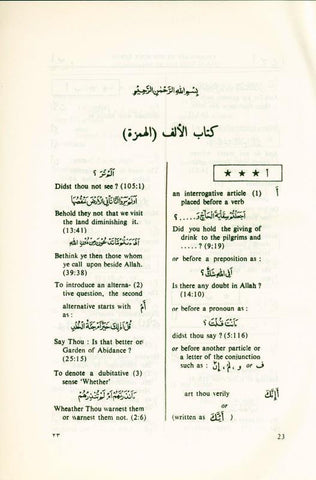 بسم الله الرحمن الرحيم
كتاب الألف (الهمزة)
أ ★ ★ ★
an interrogative article (1)
placed before a verb
أجعلتم سقاية الحاج ..... ؟
Did you hold the giving of
drink to the pilgrims and
..... ? (9;19)
or before a preposition as :
أفي الله شك ؟
Is there any doubt in Allah ?
(14:10)
or before a pronoun as :
أأنت قلت ؟
didst thou say ? (5:116)
or before another particle or
a letter of the conjunction
such as : ف or و , لم , إن
art thou verily أإنك
or
(written as أئنك )
ألم تر ؟
Didst thou not see ? (105:1)
Behold they not that we visit
the land diminishing it.
(13:41)
Bethink ye then those whom
ye call upon beside Allah.
(39:38)
To introduce an alterna- (2)
tive question, the second
alternative starts with أم
as :
Say Thou : Is that better or
Garden of Abidance ?
(25:15)
To denote a dubitative (3)
sense 'Whether'
أأنذرتهم أم لم تنذرهم
Wheather Thou warnest them
or warnest them not. (2:6)
٢٣
23